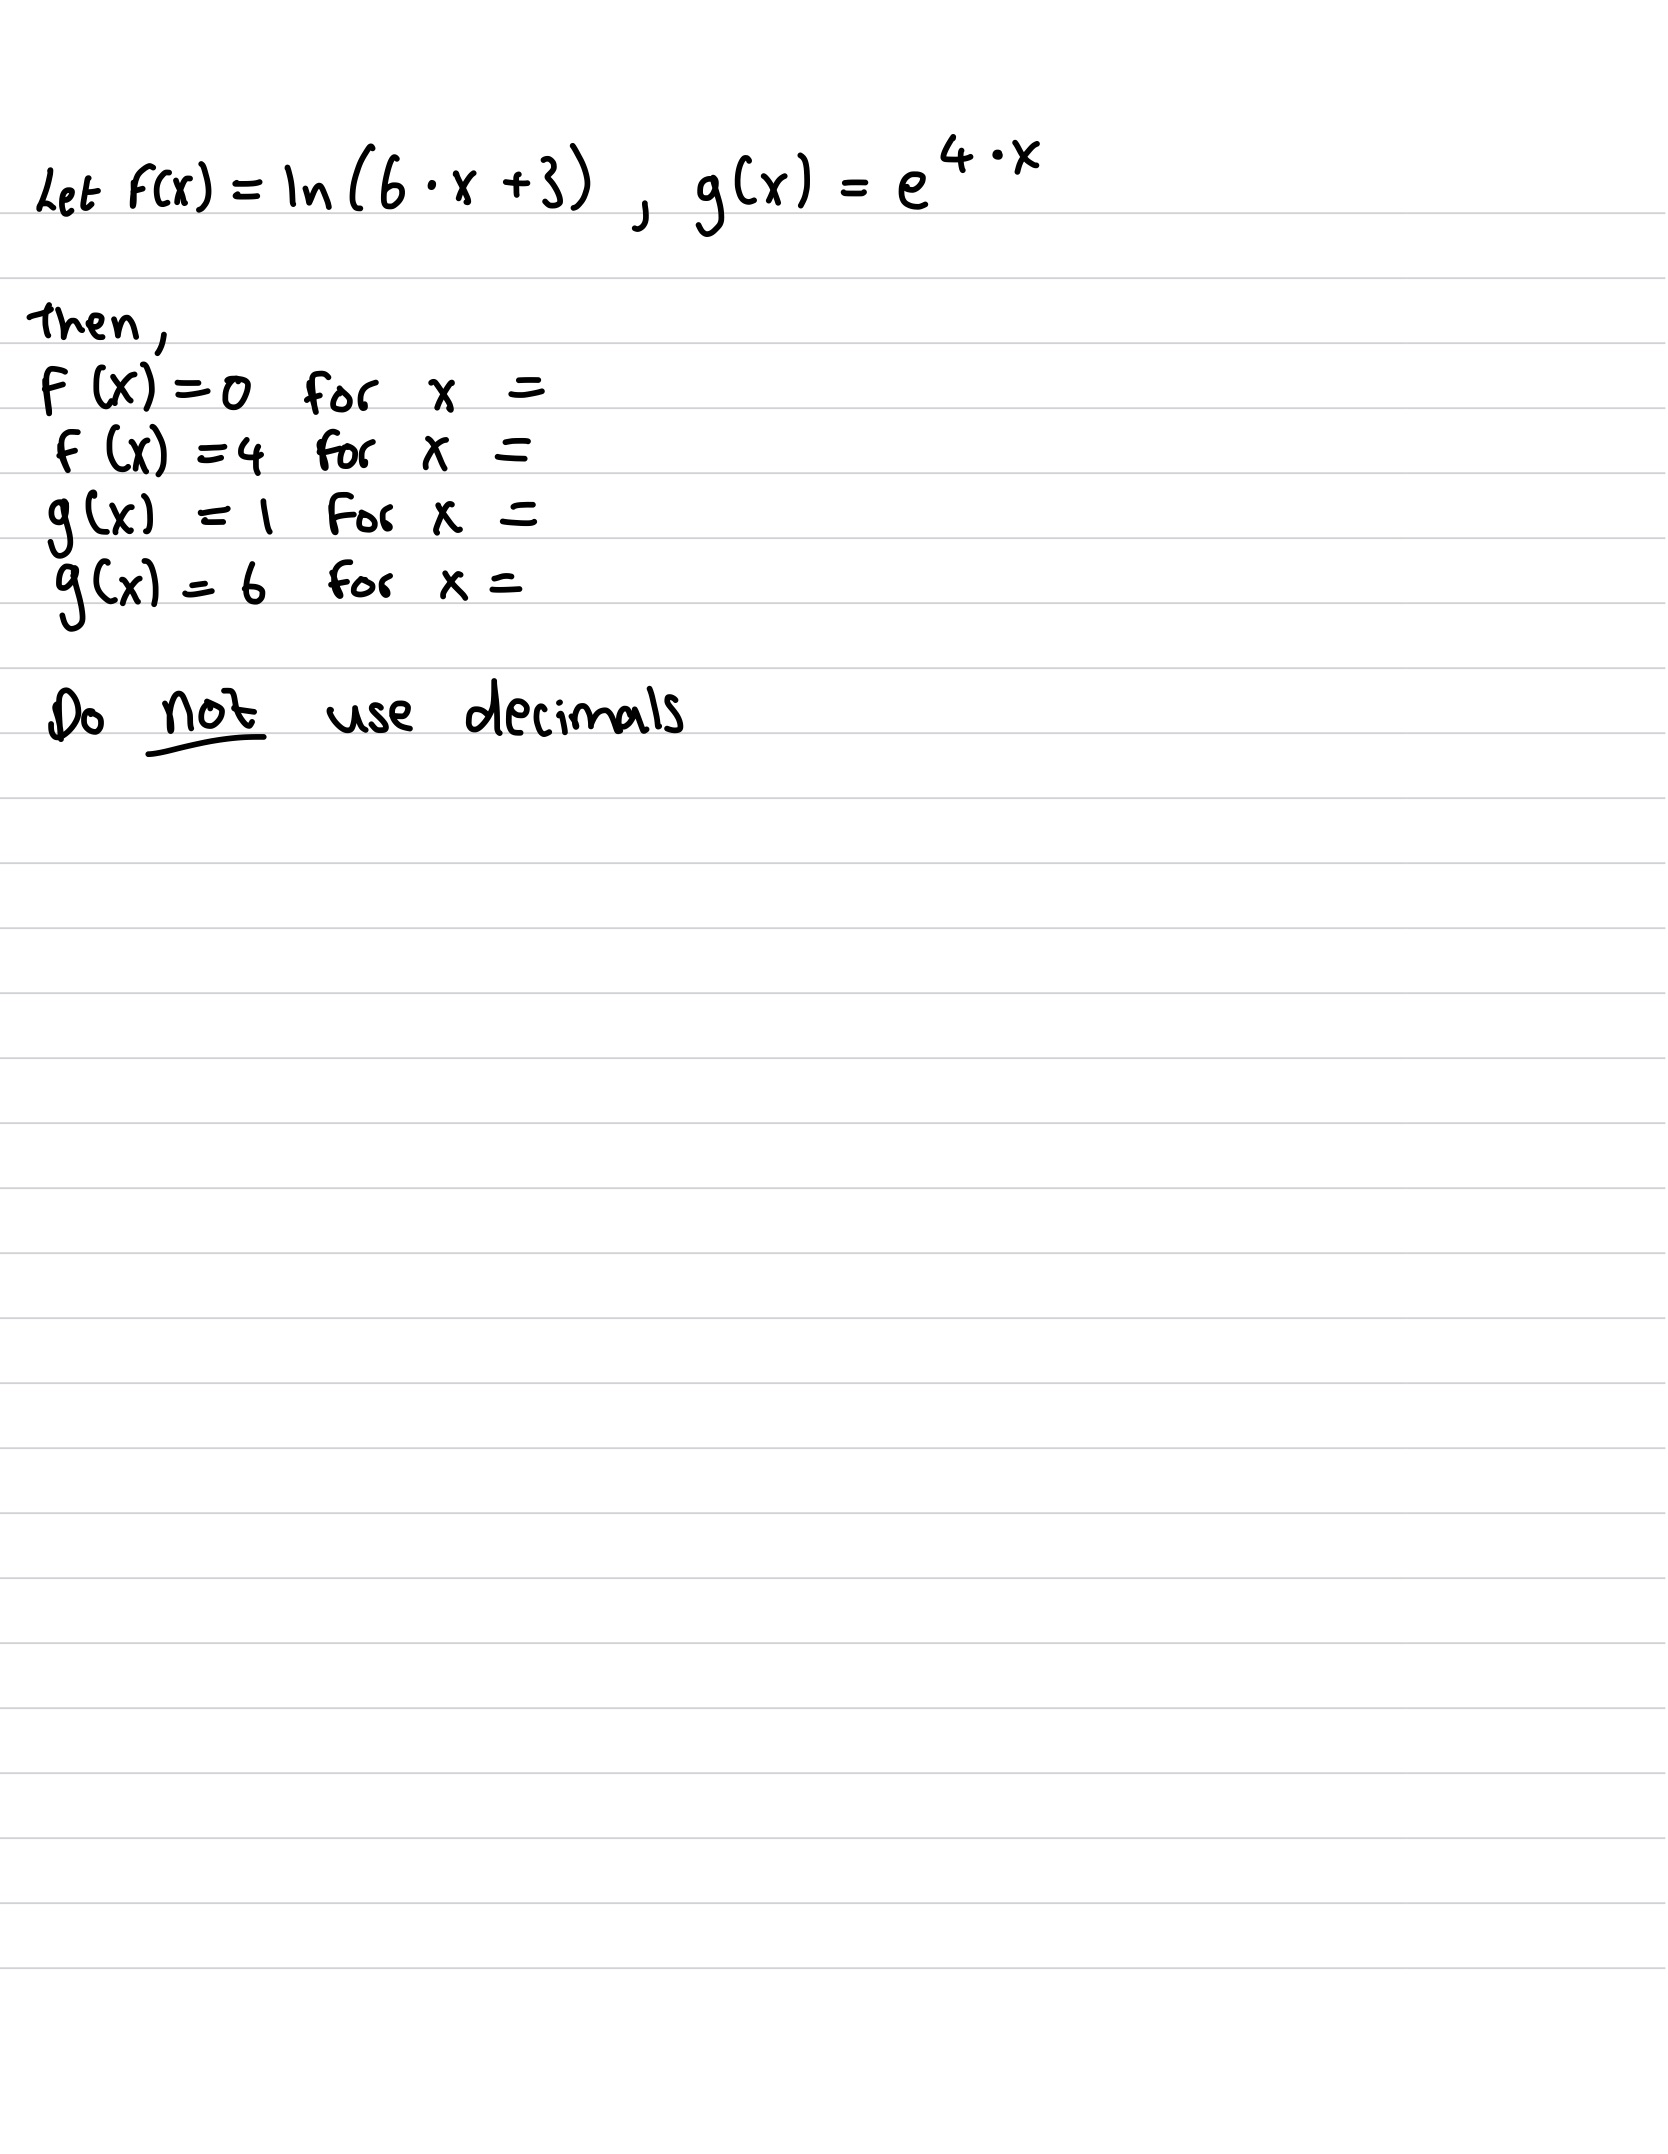 Let f(x) = ln(6·x+3) , g(x) = e^{4·x}
then,
f(x) = 0 for x =
f(x) = 4 for x =
g(x) = 1 for x =
g(x) = 6 for x =
Do not use decimals